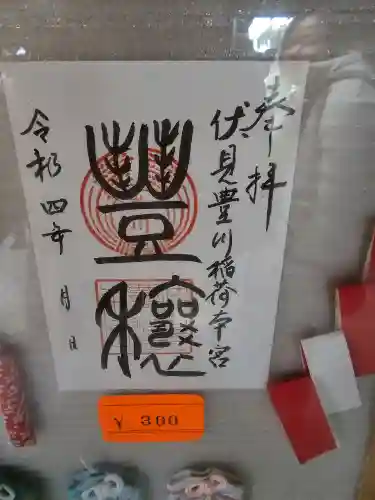 奉拝
伏見豊川稲荷本宮
豊穏
令和四年 月 日
¥ 300